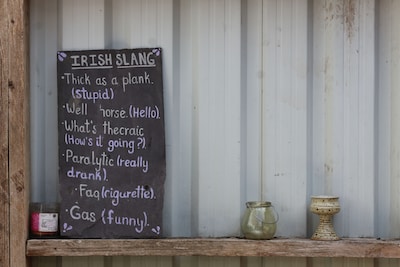 IRISH SLANG
·Thick as a plank.
(stupid)
·Well horse.(Hello).
·What's thecraic
(How's it going?)
·Paralytic(really
drunk).
·Faq(cigurette).
·Gas (funny).